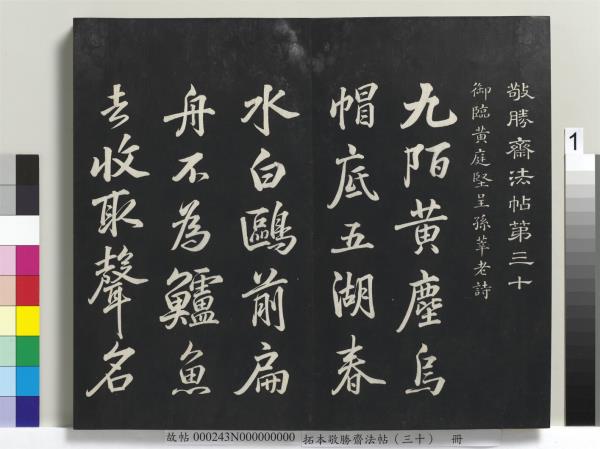 敬勝齋法帖第三十
御臨黃庭堅呈孫莘老詩
九陌黃塵烏
帽底五湖春
水白鷗前扁
舟不為鱸魚
去收取聲名
1
故帖 000243N000000000 拓本敬勝齋法帖(三十) 冊